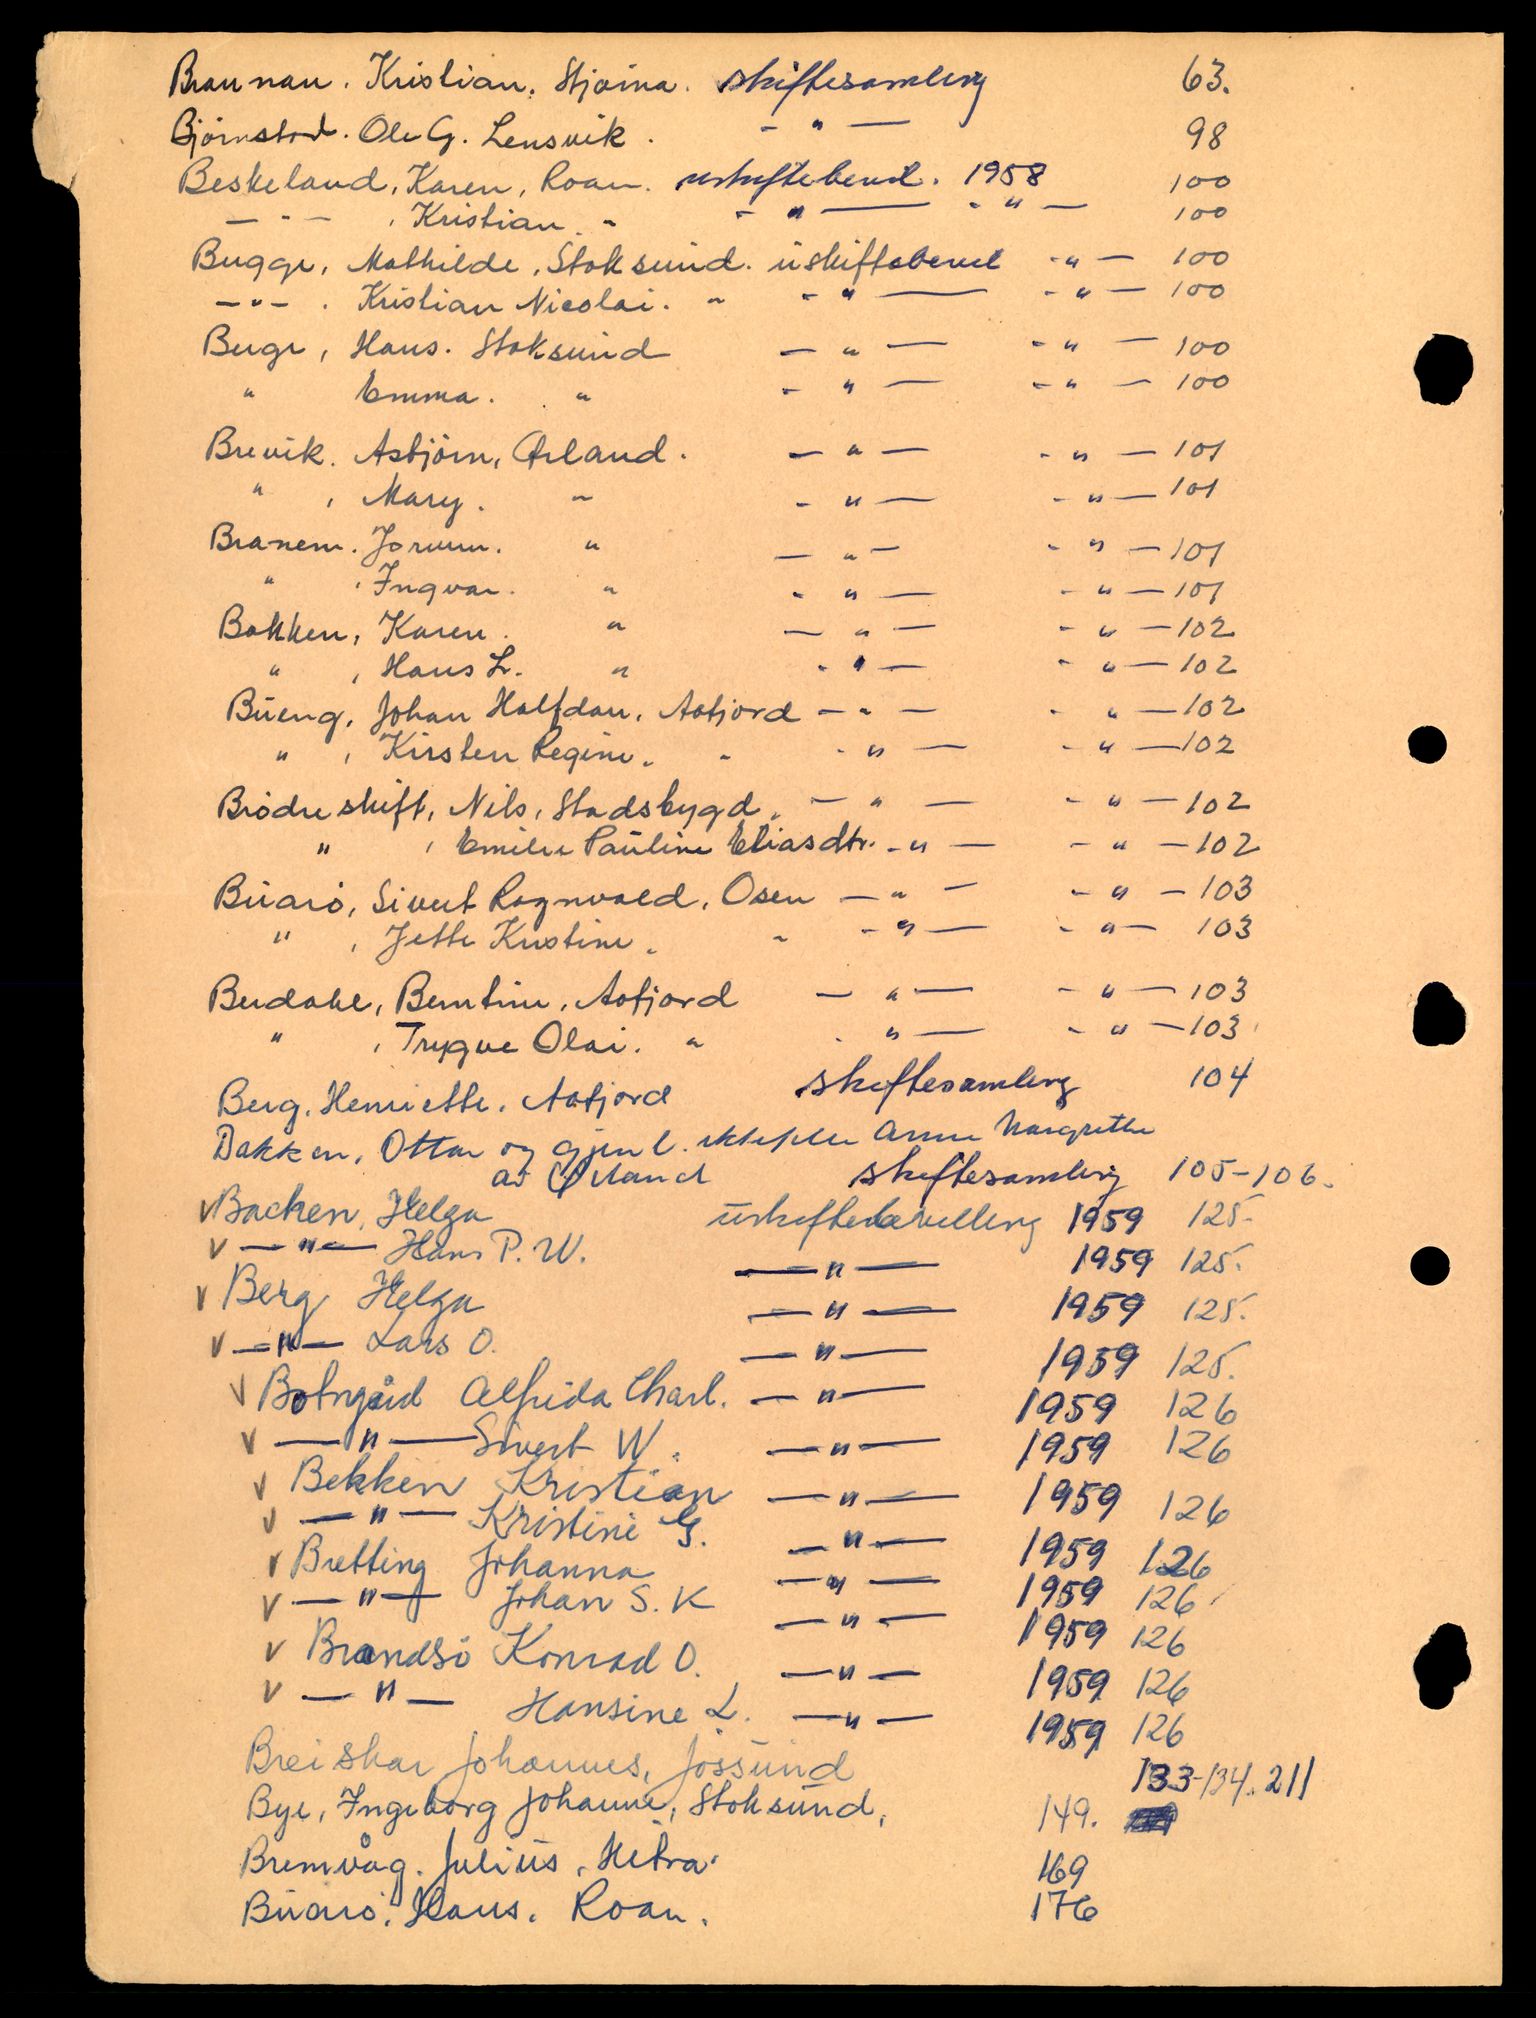 Braunau. Kristian. Stjørna. Skiftesamling 63.
Bjørnstad. Ole G. Lensvik. - " - 98
Beskeland, Karen, Roan. uskiftebevil. 1958 100
- " - , Kristian. " - " - - " - 100
Bugge, Mathilde, Stoksund. uskiftebevil - " - 100
- " - . Kristian Nicolai. " - " - - " - 100
Berge, Hans. Stoksund - " - - " - 100
" Emma. " - " - - " - 100
Brevik. Asbjørn, Ørland. - " - - " - 101
" , Mary. " - " - - " - 101
Branem. Jorunn. " - " - - " - 101
" , Ingvar. " - " - - " - 101
Bakken, Karen. " - " - - " - 102
" , Hans L. " - " - - " - 102
Bueng, Johan Halfdan, Aafjord - " - - " - 102
" , Kirsten Regine. " - " - - " - 102
Brødreskift, Nils, Stadsbygd. - " - - " - 102
" , Emilie Pauline Eliasdtr. - " - - " - 102
Buarø, Sivert Ragnvald, Osen - " - - " - 103
" , Jette Kristine. " - " - - " - 103
Berdahl, Berntine, Aafjord - " - - " - 103
" , Trygve Olai. " - " - - " - 103
Berg, Henriette, Aafjord skiftesamling 104
Bakken, Ottar og gjenl. ektefelle Anne Margrethe
av Ørland skiftesamling 105-106.
v Backen, Helga uskiftebevilling 1959 125.
v - " - Hans P. W. - " - 1959 125.
v Berg Helga - " - 1959 125.
v - " - Lars O. - " - 1959 125.
v Botngård Alfrida Charl. - " - 1959 126
v - " - Sivert W. - " - 1959 126
v Bekken Kristian - " - 1959 126
v - " - Kristine G. - " - 1959 126
v Bretting Johanna - " - 1959 126
v - " - Johan S. K - " - 1959 126
v Brandsø Konrad O. - " - 1959 126
v - " - Hansine L. - " - 1959 126
Breiskar Johannes, Jøssund 133-134. 211
Bye, Ingeborg Johanne, Stoksund, 149.
Bremvåg. Julius, Hitra. 169
Buarø, Hans. Roan. 176